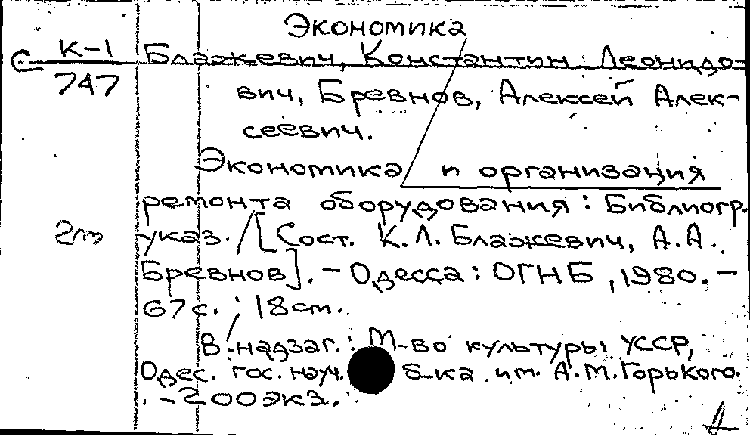 Экономика
К-1
747
Блажевич, Константин Леонидо-
вич, Бревнов, Алексей Алек-
сеевич.
Экономика и организация
ремонта оборудования: Библиогр.
2пз
указ. /[Сост. К.Л. Блажевич, А.А.
Бревнов]. - Одесса: ОГНБ, 1980. -
67с.; 18см.
В надзаг.: М-во культуры УССР,
Одес. гос. науч. б-ка им. А.М. Горького.
- 200экз.